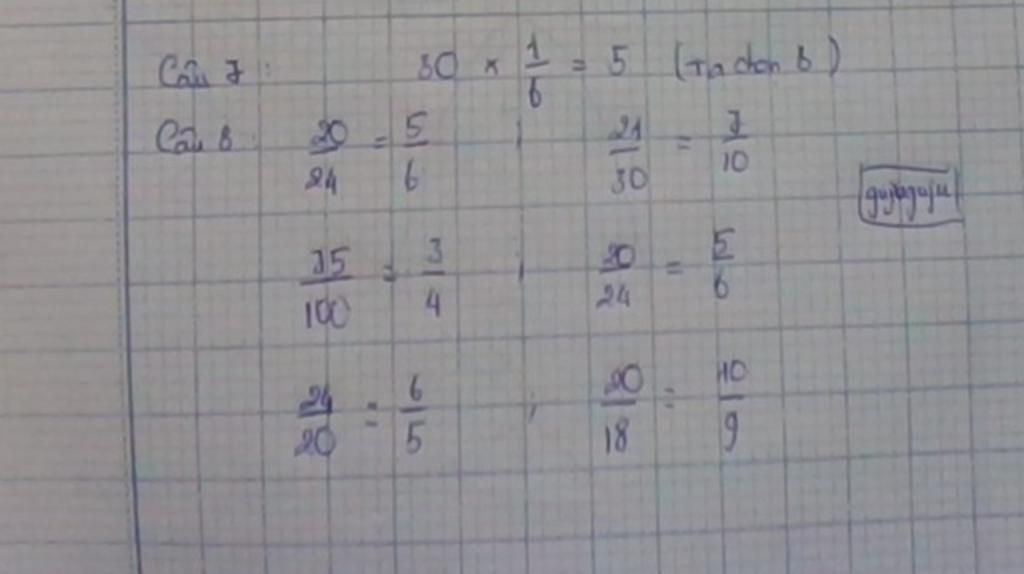 Câu 7 : 30 × 1/6 = 5 (Ta chọn B)
Câu 8 : 20/24 = 5/6 ; 21/30 = 7/10
75/100 = 3/4 ; 20/24 = 5/6
24/20 = 6/5 ; 20/18 = 10/9